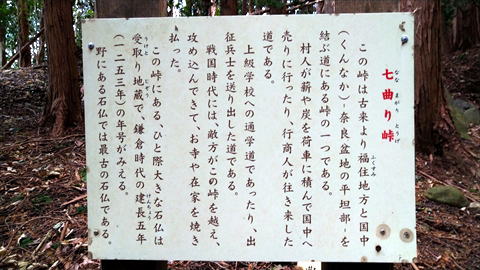 七曲り峠
なな まがり とうげ
この峠は古来より福住地方と国中
ふくずみ
(くんなか)-奈良盆地の平坦部-を
結ぶ道にある峠の一つである。
村人が薪や炭を荷車に積んで国中へ
売りに行ったり、行商人が往き来した
道である。
上級学校への通学道であったり、出
征兵士を送り出した道である。
戦国時代には、敵方がこの峠を越え、
攻め込んできて、お寺や在家を焼き
払った。
この峠にある、ひと際大きな石仏は
受取り地蔵で、鎌倉時代の建長五年
うけとり じぞう けんちょう
(一二五三年)の年号がみえる。
野にある石仏では最古の石仏である。